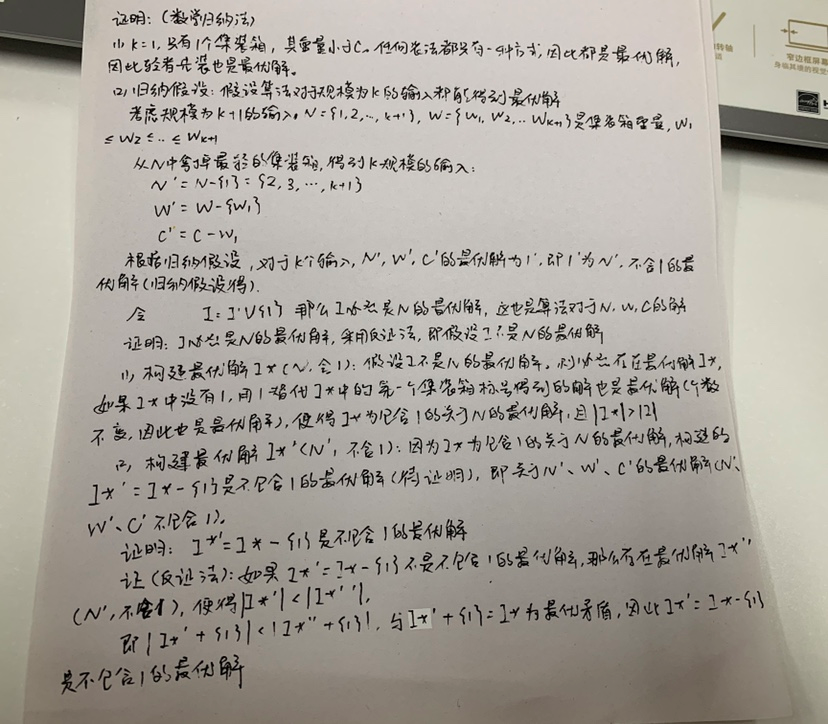 证明：（数学归纳法）
(1) k=1，只有1个集装箱，其重量小于C。任何装法都只有一种方式，因此都是最优解，
因此轻者先装也是最优解。
(2) 归纳假设：假设算法对于规模为k的输入都能得到最优解
考虑规模为k+1的输入。N={1,2,…,k+1}，W={w₁,w₂,…w_{k+1}}是集装箱重量，w₁
≤w₂≤…≤w_{k+1}
从N中拿掉最轻的集装箱，得到k规模的输入：
N'=N-{1}={2,3,…,k+1}
W'=W-{w₁}
C'=C-w₁
根据归纳假设，对于k个输入，N'，W'，C'的最优解为I'，即I'为N'，不含1的最
优解（归纳假设得）.
令 I=I'∪{1} 那么I必然是N的最优解，这也是算法对于N，W，C的解
证明：I必然是N的最优解，采用反证法，即假设I不是N的最优解
(1) 构建最优解I*(N，含1)：假设I不是N的最优解。则必然存在最优解I*，
如果I*中没有1，用1替代I*中的第一个集装箱标号得到的解也是最优解（个数
不变，因此也是最优解），使得I*为包含1的关于N的最优解，且|I*|>|I|
(2) 构建最优解I*'(N'，不含1)：因为I*为包含1的关于N的最优解，构建的
I*'=I*-{1}是不包含1的最优解（待证明），即关于N'、W'、C'的最优解（N'、
W'、C'不包含1）。
证明：I*'=I*-{1}是不包含1的最优解
证（反证法）：如果I*'=I*-{1}不是不包含1的最优解，那么存在最优解I*''
(N'，不含1)，使得|I*'|<|I*''|，
即|I*'+{1}|<|I*''+{1}|，与I*'+{1}=I*为最优矛盾，因此I*'=I*-{1}
是不包含1的最优解
窄边框屏幕